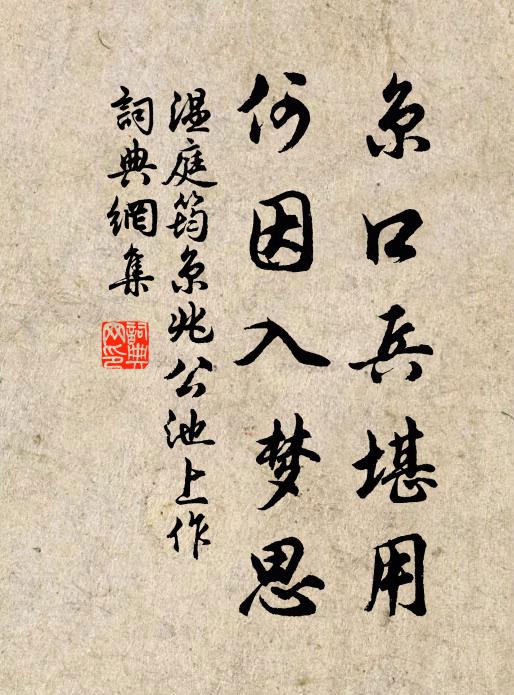 京口兵堪用
何因入梦思
温庭筠京兆公池上作
詞典網集
詞典网印